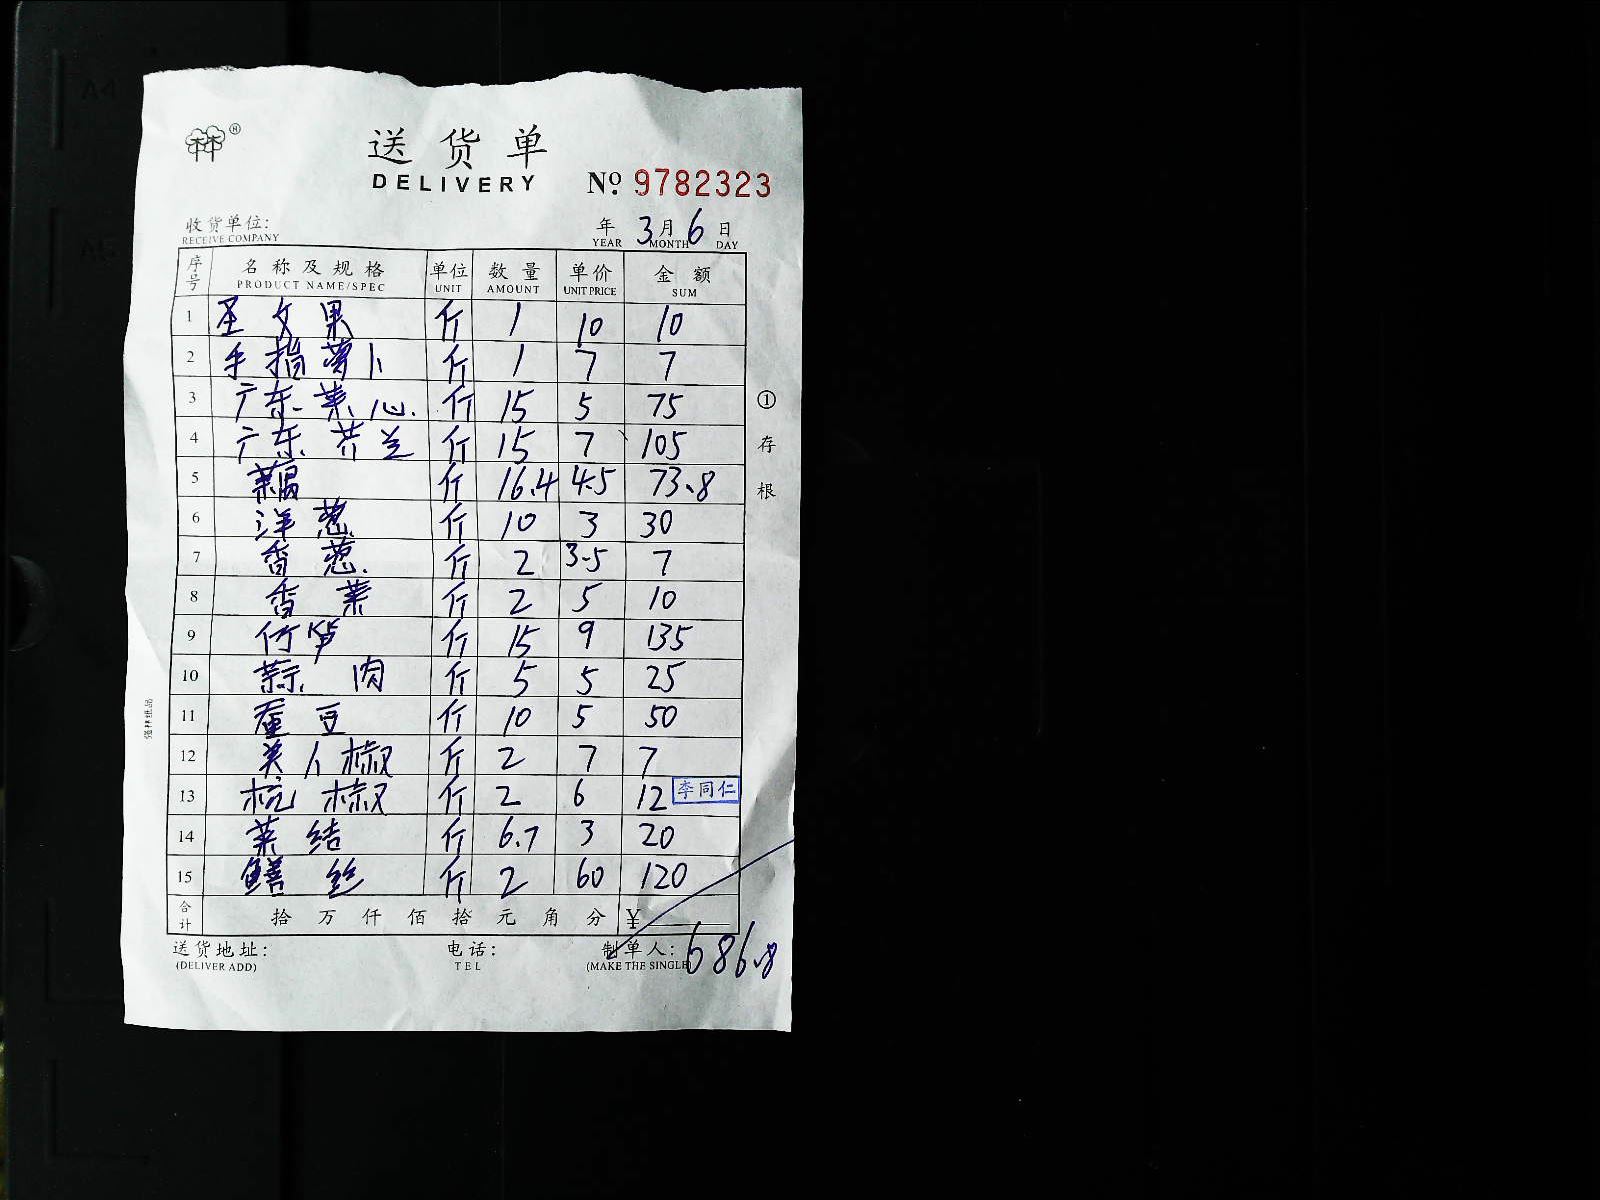 林林®
送货单
DELIVERY
№ 9782323
收货单位:
RECEIVE COMPANY
年 3 月 6 日
YEAR MONTH DAY
序号 名称及规格 单位 数量 单价 金额
PRODUCT NAME/SPEC UNIT AMOUNT UNIT PRICE SUM
1 圣女果 斤 1 10 10
2 手指萝卜 斤 1 7 7
3 广东菜心. 斤 15 5 75
4 广东芥兰 斤 15 7 105
5 藕 斤 16.4 4.5 73.8
6 洋葱 斤 10 3 30
7 香葱. 斤 2 3.5 7
8 香菜 斤 2 5 10
9 竹笋 斤 15 9 135
10 蒜肉 斤 5 5 25
11 蚕豆 斤 10 5 50
12 美人椒 斤 2 7 7
13 杭椒 斤 2 6 12 李同仁
14 菜结 斤 6.7 3 20
15 鳝丝 斤 2 60 120
合计 拾 万 仟 佰 拾 元 角 分 ¥
686.8
送货地址: 电话: 制单人:
(DELIVER ADD) TEL (MAKE THE SINGLE)
①存根